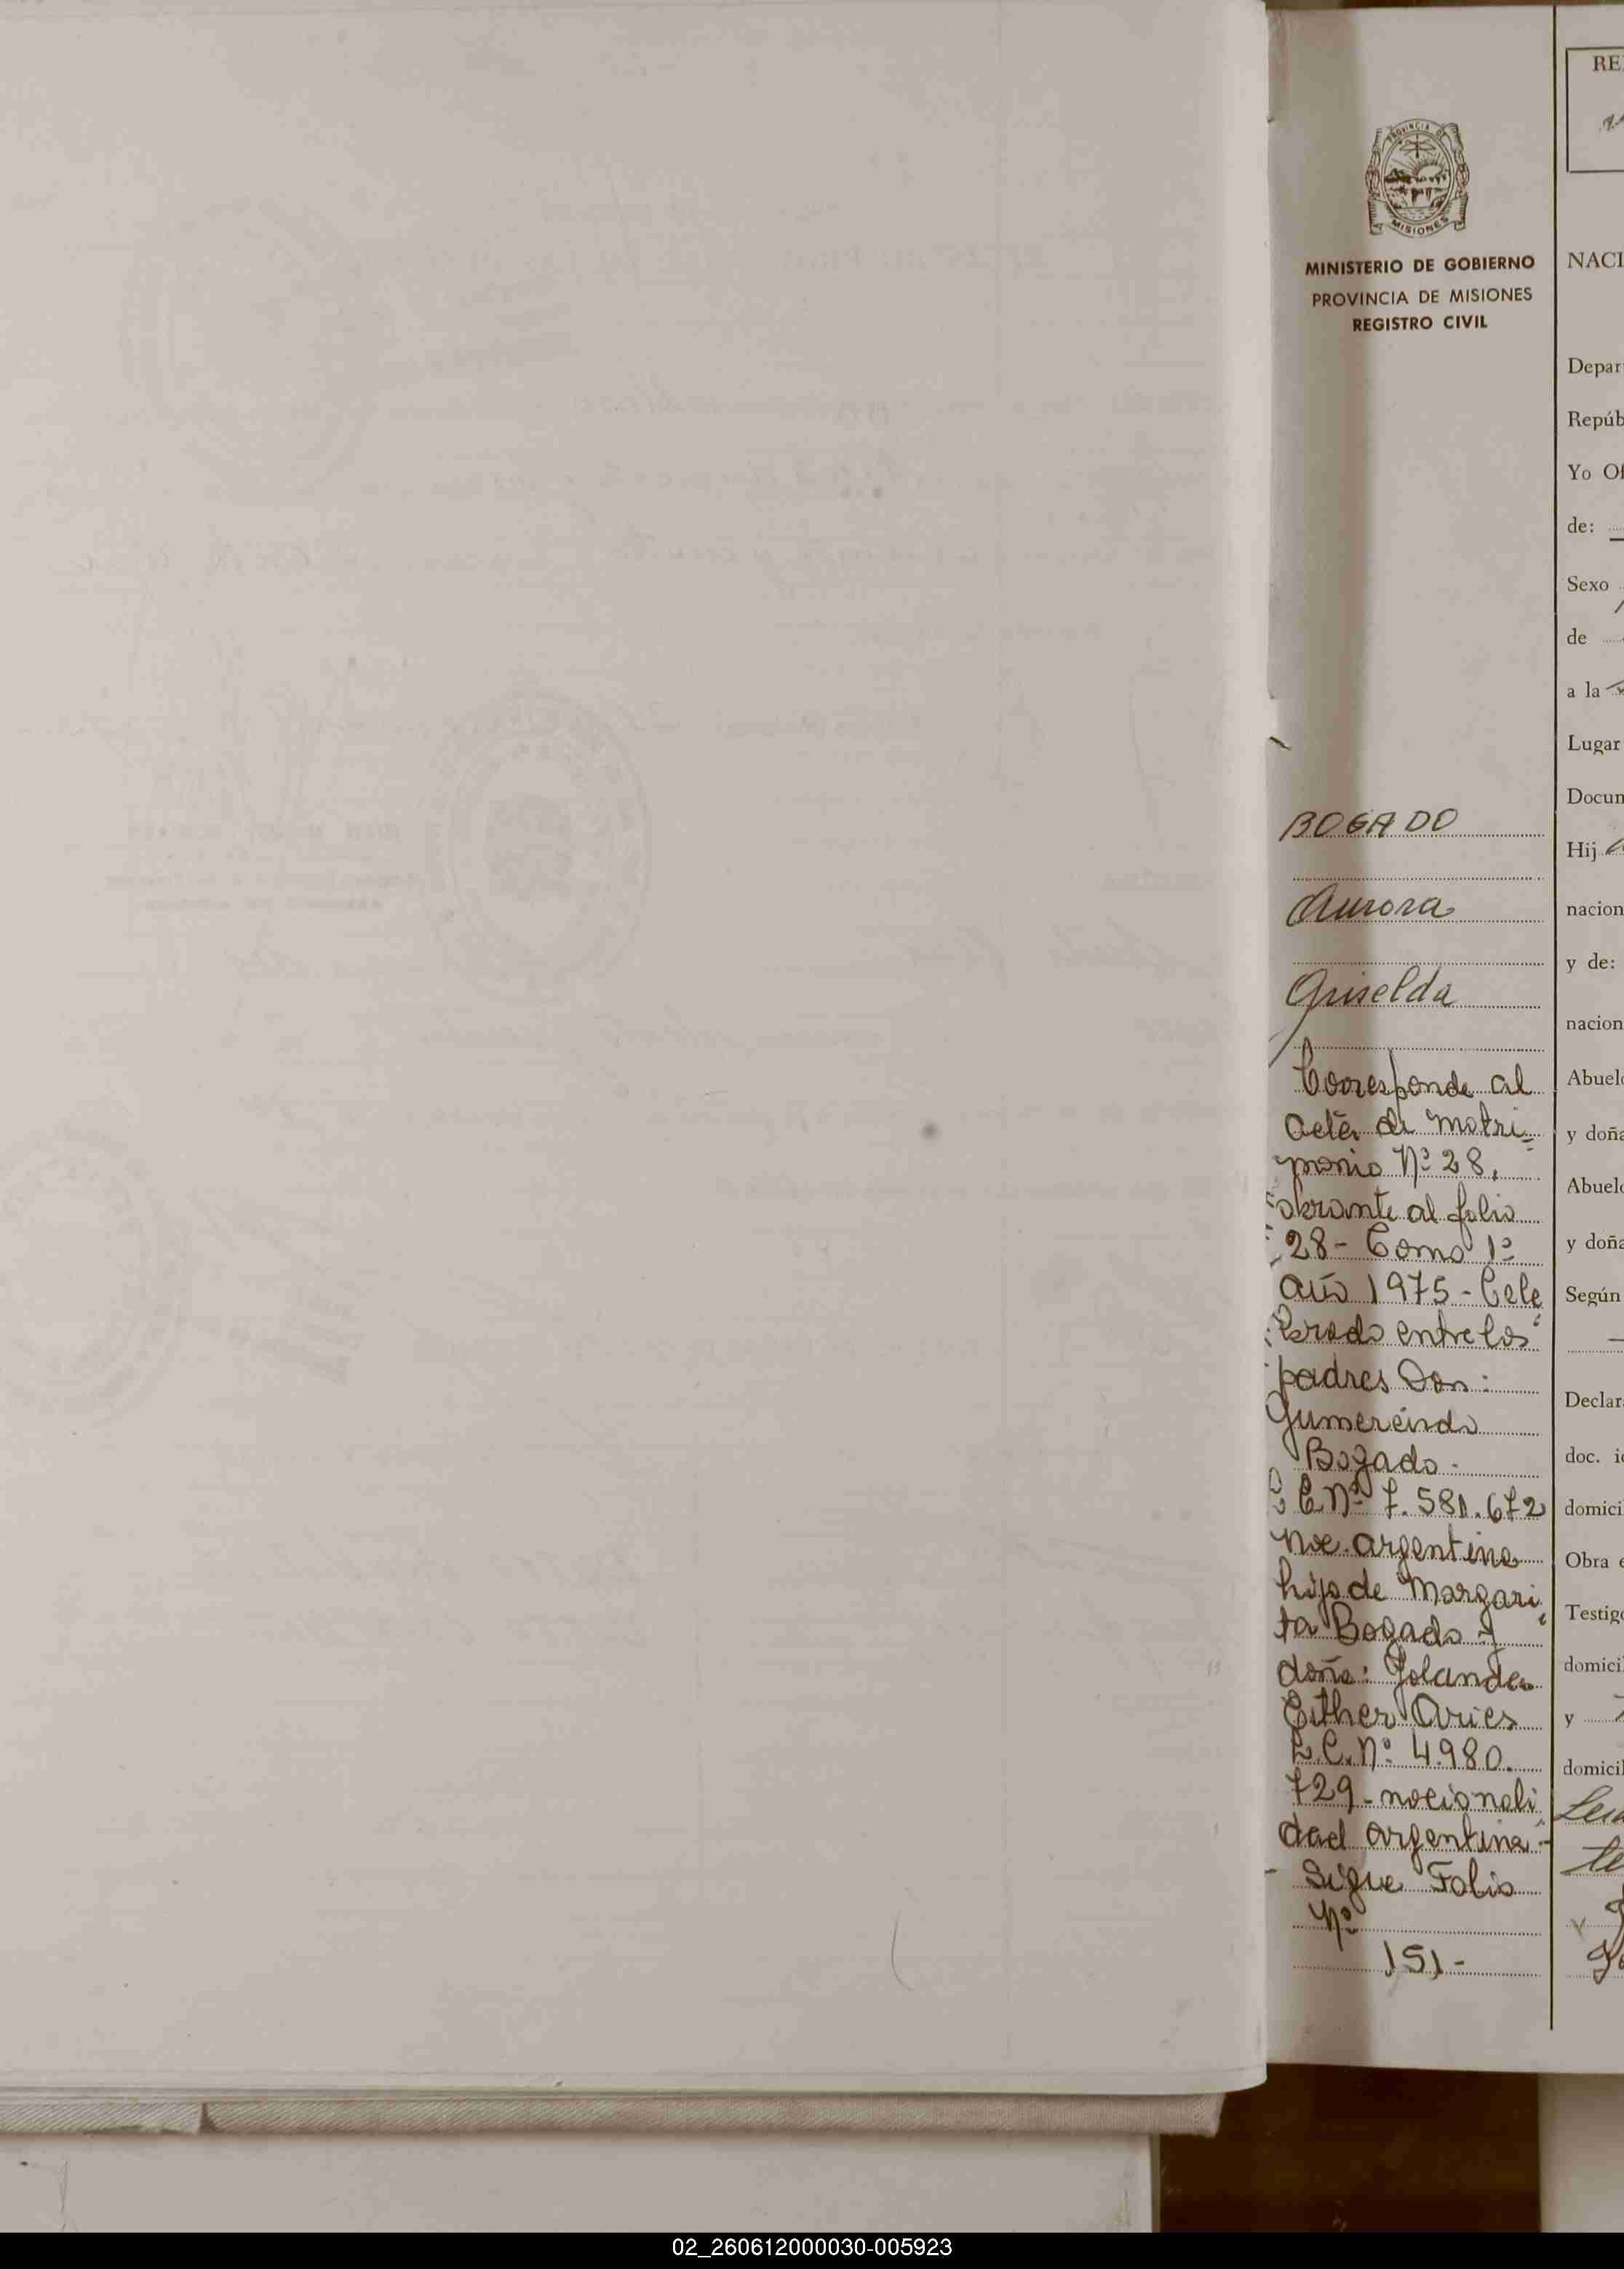 PROVINCIA DE
MISIONES
MINISTERIO DE GOBIERNO
PROVINCIA DE MISIONES
REGISTRO CIVIL
BOGADO
Aurora
Griselda
Corresponde al
acta de matri-
monio Nº 28.
obrante al folio
28 - Tomo 1º
año 1975 - Cele
brado entre los
padres Don:
Gumercindo
Bogado -
L E Nº 7.581.672
nac. argentina
hijo de Margari
ta Bogado y
doña: Yolanda
Esther Aries
L.C. Nº 4.980.
729 - nacionali
dad argentina -
- Sigue Folio
Nº
151 -
RE
NACI
Depar
Repúb
Yo Of
de:
Sexo
de
a la
Lugar
Docum
Hij
nacion
y de:
nacion
Abuelo
y doña
Abuelo
y doña
Según
Declara
doc. id
domici
Obra e
Testigo
domicil
y
domicil
02_260612000030-005923